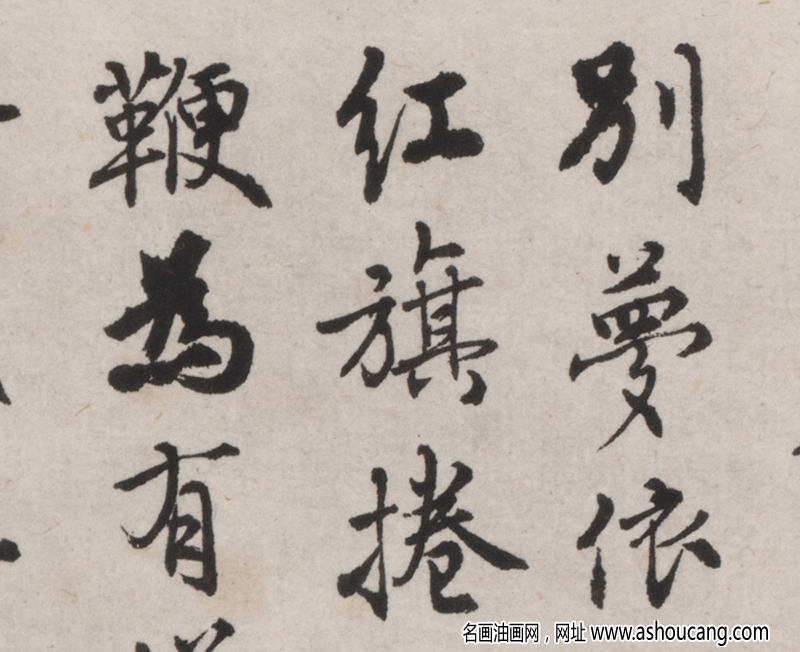 別夢依
紅旗捲
鞭為有
名画油画网，网址 www.ashoucang.com